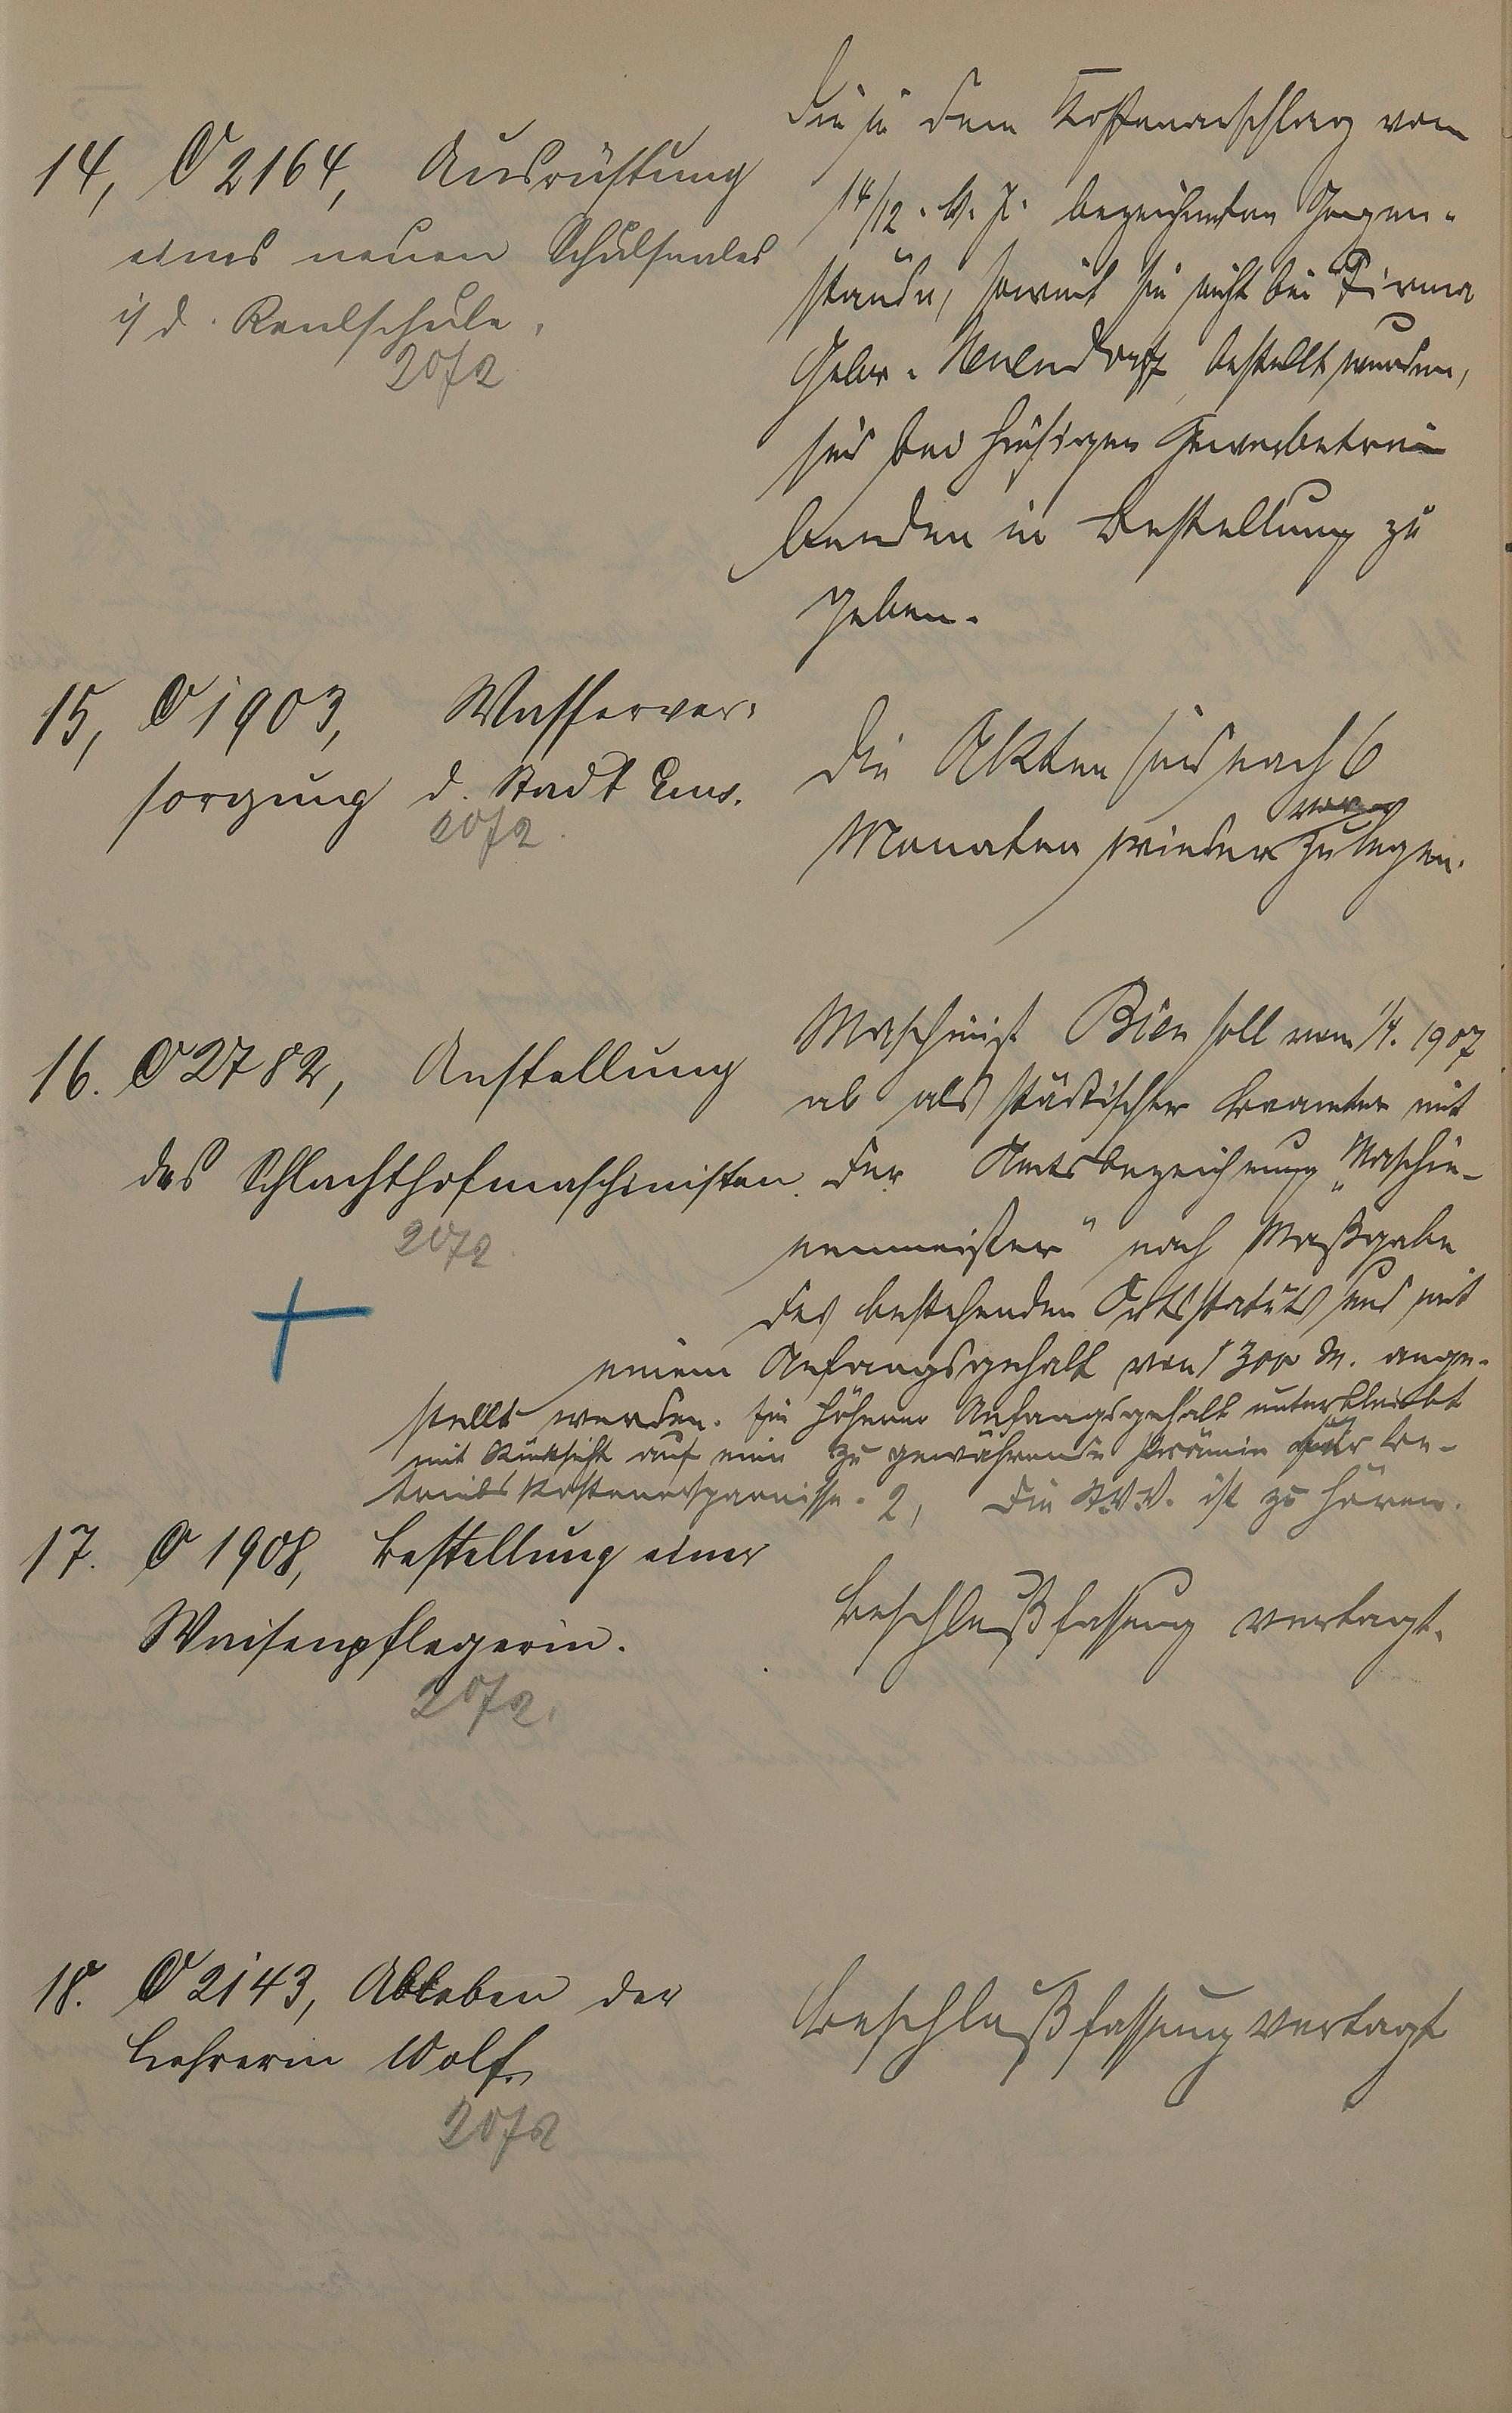 14, O 2164, Ausrüstung
eines neuen Schulsaales
i/d. Realschule.
2072
Die in dem Kostenanschlag vom
14/12. v. J. bezeichneten Gegen-
stände, soweit sie nicht bei Firma
Gebr. Neuendorf bestellt wurden,
sind bei hiesigen Gewerbetrei
benden in Bestellung zu
geben.
15, O 1903, Wasserver-
sorgung d. Stadt Ems.
2072.
Die Akten sind nach 6
Monaten wieder vorzulegen.
16. O 2782, Anstellung
des Schlachthofmaschinisten.
2072.
Maschinist Bien soll vom 1/4. 1907
ab als städtischer Beamter mit
der Amtsbezeichnung „Maschi-
nenmeister" nach Maßgabe
des bestehenden Ortsstatuts und mit
einem Anfangsgehalt von 1300 M. ange-
stellt werden. Ein höherer Anfangsgehalt unterbleibt
mit Rücksicht auf eine zu gewährende Prämie für Be-
triebskostenersparnisse. 2, Die St.V.V. ist zu hören.
17. O 1908, Bestellung einer
Waisenpflegerin.
2072.
Beschlußfassung vertagt.
18. O 2143, Ableben der
Lehrerin Wolf.
2072
Beschlußfassung vertagt